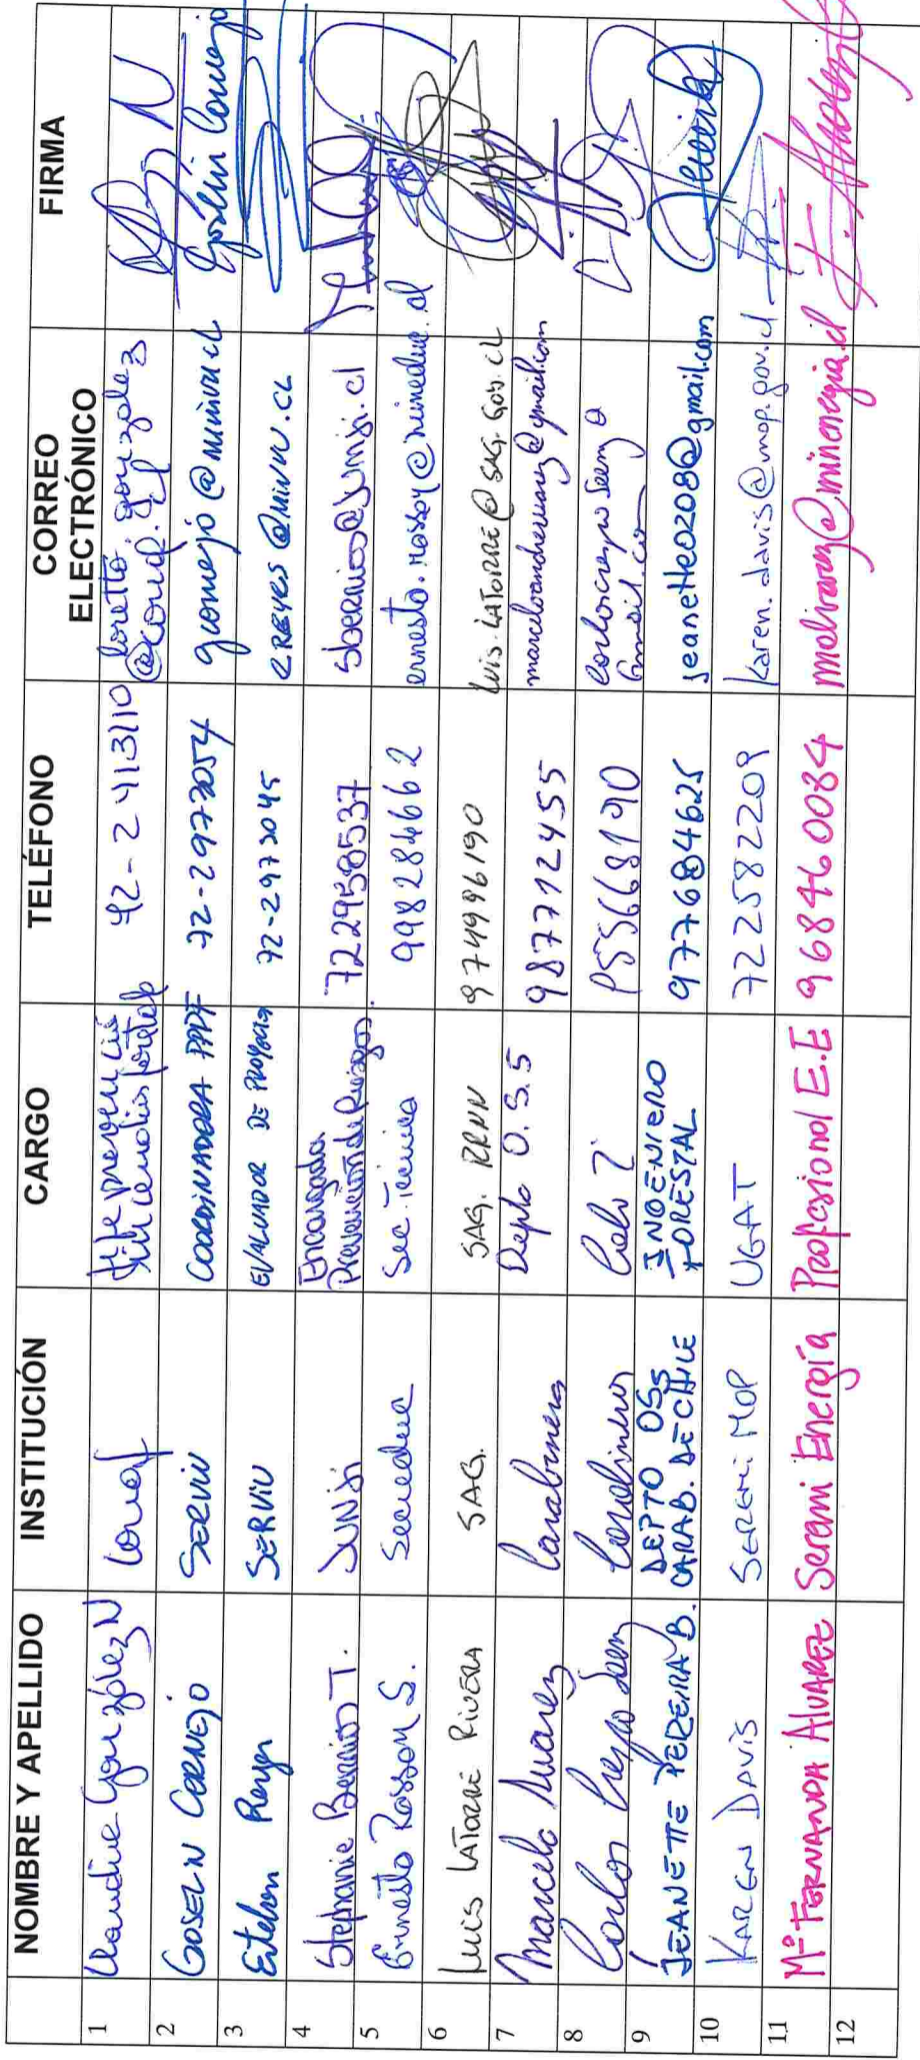 NOMBRE Y APELLIDO INSTITUCIÓN CARGO TELÉFONO CORREO ELECTRÓNICO FIRMA
1 Claudia González N Conaf Jefe prevención incendios forestales 42-2 413110 loretto.gonzalez@conaf.cl
2 GOSELIN CORNEJO SERVIU COORDINADORA PPPF 72-2973054 gcornejo@minvu.cl Goselin Cornejo
3 Esteban Reyes SERVIU EVALUADOR DE PROYECTOS 72-2973045 EREYES@MINVU.CL
4 Stephanie Berrios T. JUNJI Encargada Prevención de Riesgos. 722958537 sberrios@junji.cl
5 Ernesto Rosson S. Seceduc Sec. Técnico 998284662 ernesto.rosson@mineduc.cl
6 Luis LATORRE RIVERA SAG. SAG. RRNN 974996190 Luis.LATORRE@SAG.GOB.CL
7 Marcelo Alvarez Carabineros Depto O.S.5 987712455 @gmail.com
8 Carlos Crespo Carabineros Cabo 2 @gmail.com
9 JEANETTE PEREIRA B. DEPTO OS5 CARAB. DE CHILE INGENIERO FORESTAL 977684625 jeanette0208@gmail.com
10 KAREN DAVIS SEREMI MOP UGAT 722582209 Karen.davis@mop.gov.cl
11 Mª FERNANDA ALVAREZ Seremi Energía Profesional E.E 968460084 malvarez@minenergia.cl
12